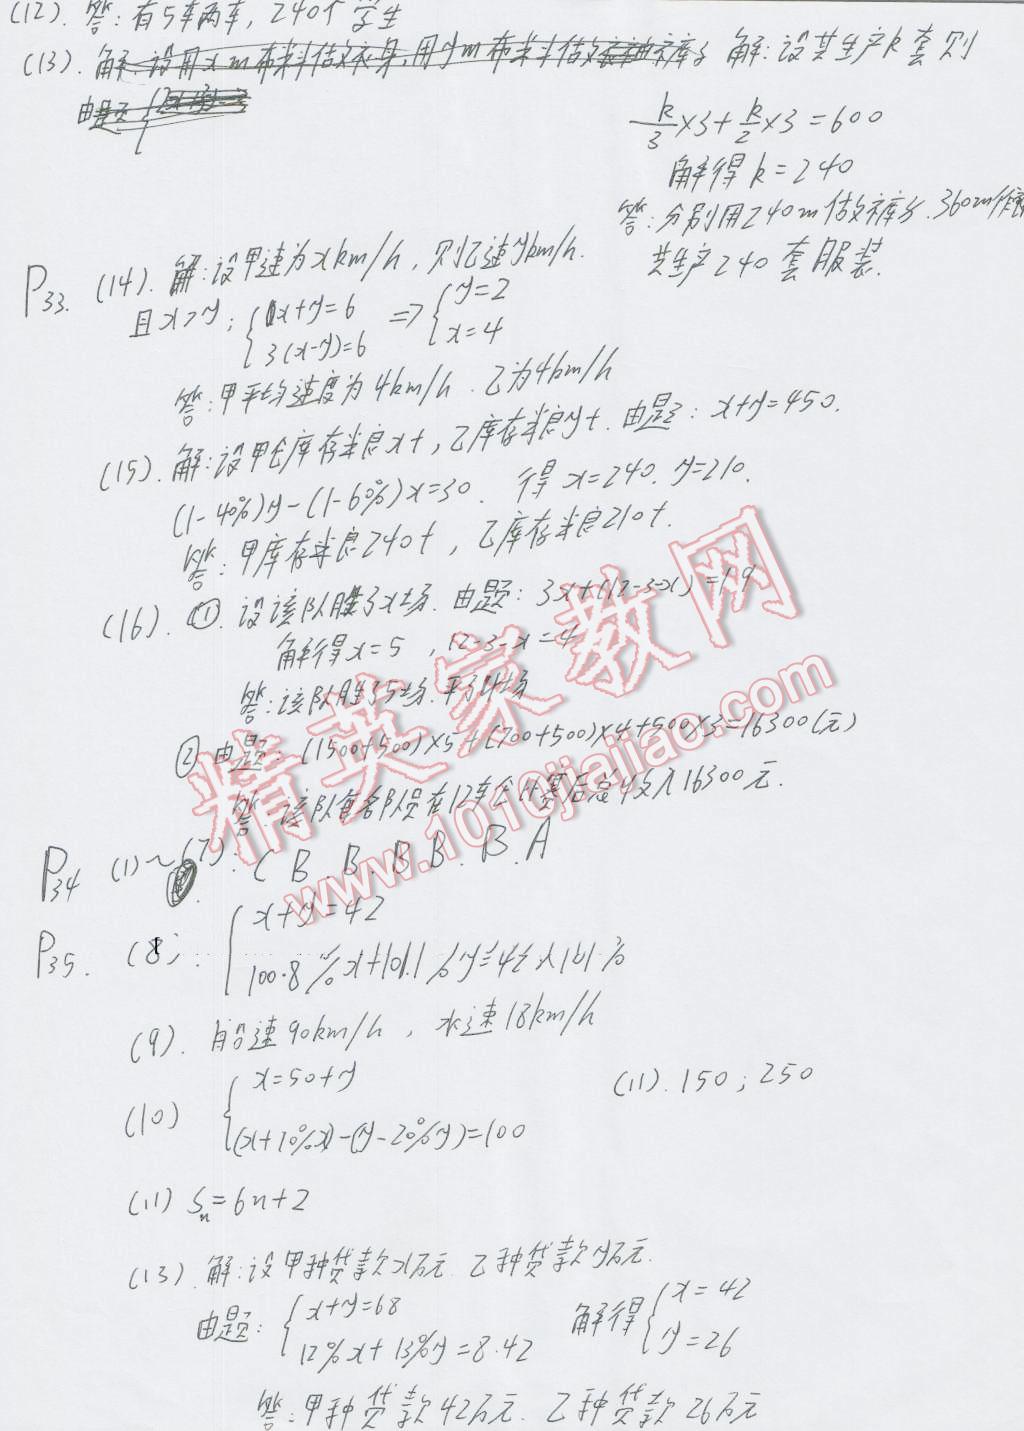 (12). 答: 有5车两车, 240个学生
(13). 解: 设用xm布料做衣身, 用ym布料做衣袖裤子 解: 设共生产k套 则
由题
k/3 ×3 + k/2 ×3 = 600
解得 k = 240
答: 分别用240m做裤子. 360m作
共生产240套服装.
P33. (14). 解: 设甲速为xkm/h, 则乙速ykm/h.
且x>y; { x+y=6 => { y=2
3(x-y)=6 x=4
答: 甲平均速度为4km/h. 乙为4km/h
(15). 解: 设甲仓库存粮xt, 乙库存粮yt. 由题: x+y=450.
(1-40%)y-(1-60%)x=30. 得x=240. y=210.
答: 甲库存粮240t, 乙库存粮210t.
(16). ①. 设该队胜了x场. 由题: 3x+(12-3-x)=19
解得x=5, 12-3-x=4
答: 该队胜了5场. 平了4场
② 由题: (1500+500)×5+(700+500)×4+500×3=16300(元)
答: 该队每名队员在12车全计赛后总收入16300元.
P34 (1)~(7): C B. B. B B. B. A
P35. (8): { x+y=42
100.8%x+101.1%y=42×101%
(9). 船速90km/h, 水速18km/h
(10) { x=50+y (11). 150; 250
(x+20%x)-(y-20%y)=100
(11) Sn=6n+2
(13). 解: 设甲种贷款x万元. 乙种贷款y万元.
由题: { x+y=68 解得 { x=42
12%x+13%y=8.42 y=26
答: 甲种贷款42万元. 乙种贷款26万元
精英家教网
www.1010jiajiao.com